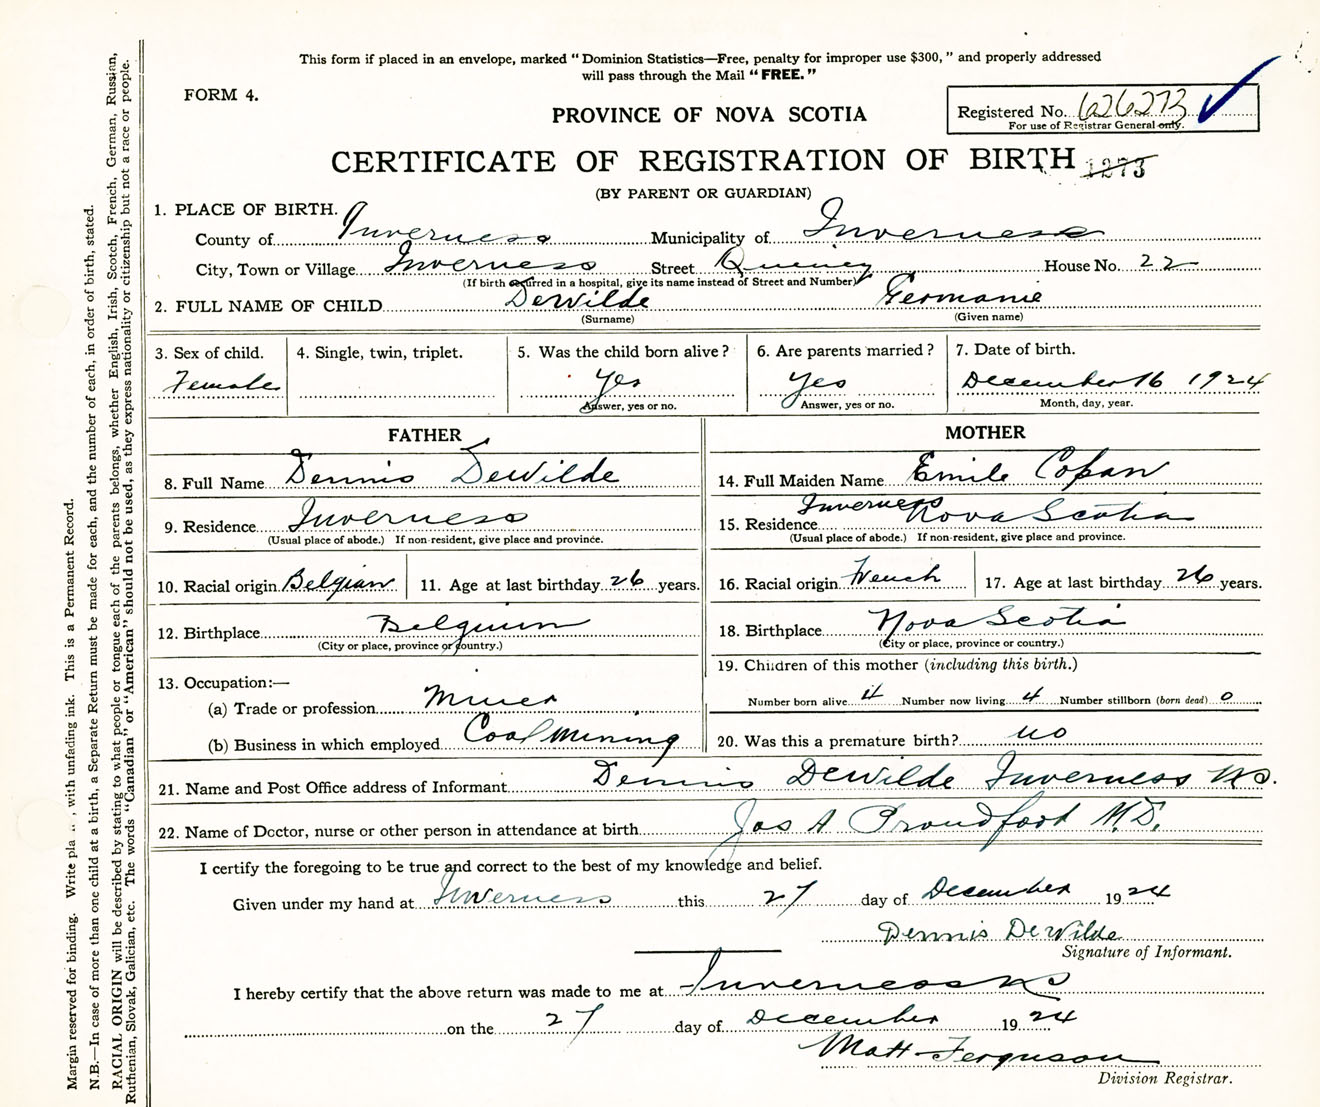 This form if placed in an envelope, marked "Dominion Statistics—Free, penalty for improper use $300," and properly addressed
will pass through the Mail "FREE."
FORM 4.
PROVINCE OF NOVA SCOTIA
Registered No. 626273
For use of Registrar General only.
CERTIFICATE OF REGISTRATION OF BIRTH 1273
(BY PARENT OR GUARDIAN)
1. PLACE OF BIRTH.
County of Inverness Municipality of Inverness
City, Town or Village Inverness Street House No. 22
(If birth occurred in a hospital, give its name instead of Street and Number)
2. FULL NAME OF CHILD DeWilde Germanie
(Surname) (Given name)
3. Sex of child. 4. Single, twin, triplet. 5. Was the child born alive? 6. Are parents married? 7. Date of birth.
Female Yes Yes December 16 1924
Answer, yes or no. Answer, yes or no. Month, day, year.
FATHER
8. Full Name Dennis DeWilde
9. Residence Inverness
(Usual place of abode.) If non-resident, give place and province.
10. Racial origin Belgian 11. Age at last birthday 26 years.
12. Birthplace Belguim
(City or place, province or country.)
13. Occupation:—
(a) Trade or profession Miner
(b) Business in which employed Coal Mining
MOTHER
14. Full Maiden Name Emile Copan
15. Residence Inverness Nova Scotia
(Usual place of abode.) If non-resident, give place and province.
16. Racial origin French 17. Age at last birthday 26 years.
18. Birthplace Nova Scotia
(City or place, province or country.)
19. Children of this mother (including this birth.)
Number born alive 4 Number now living 4 Number stillborn (born dead) 0
20. Was this a premature birth? no
21. Name and Post Office address of Informant Dennis DeWilde Inverness N.S.
22. Name of Doctor, nurse or other person in attendance at birth Jas A Proudfoot M.D.
I certify the foregoing to be true and correct to the best of my knowledge and belief.
Given under my hand at Inverness this 27 day of December 1924
Dennis DeWilde
Signature of Informant.
I hereby certify that the above return was made to me at Inverness NS
on the 27 day of December 1924
Matt Ferguson
Division Registrar.
Margin reserved for binding. Write pla , with unfading ink. This is a Permanent Record.
N.B.—In case of more than one child at a birth, a Separate Return must be made for each, and the number of each, in order of birth, stated.
RACIAL ORIGIN will be described by stating to what people or tongue each of the parents belongs, whether English, Irish, Scotch, French, German, Russian,
Ruthenian, Slovak, Galician, etc. The words "Canadian" or "American" should not be used, as they express nationality or citizenship but not a race or people.